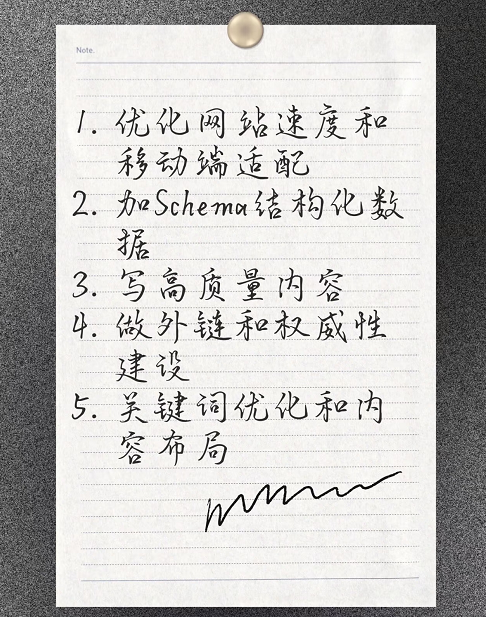 Note.
1. 优化网站速度和
移动端适配
2. 加Schema结构化数
据
3. 写高质量内容
4. 做外链和权威性
建设
5. 关键词优化和内
容布局